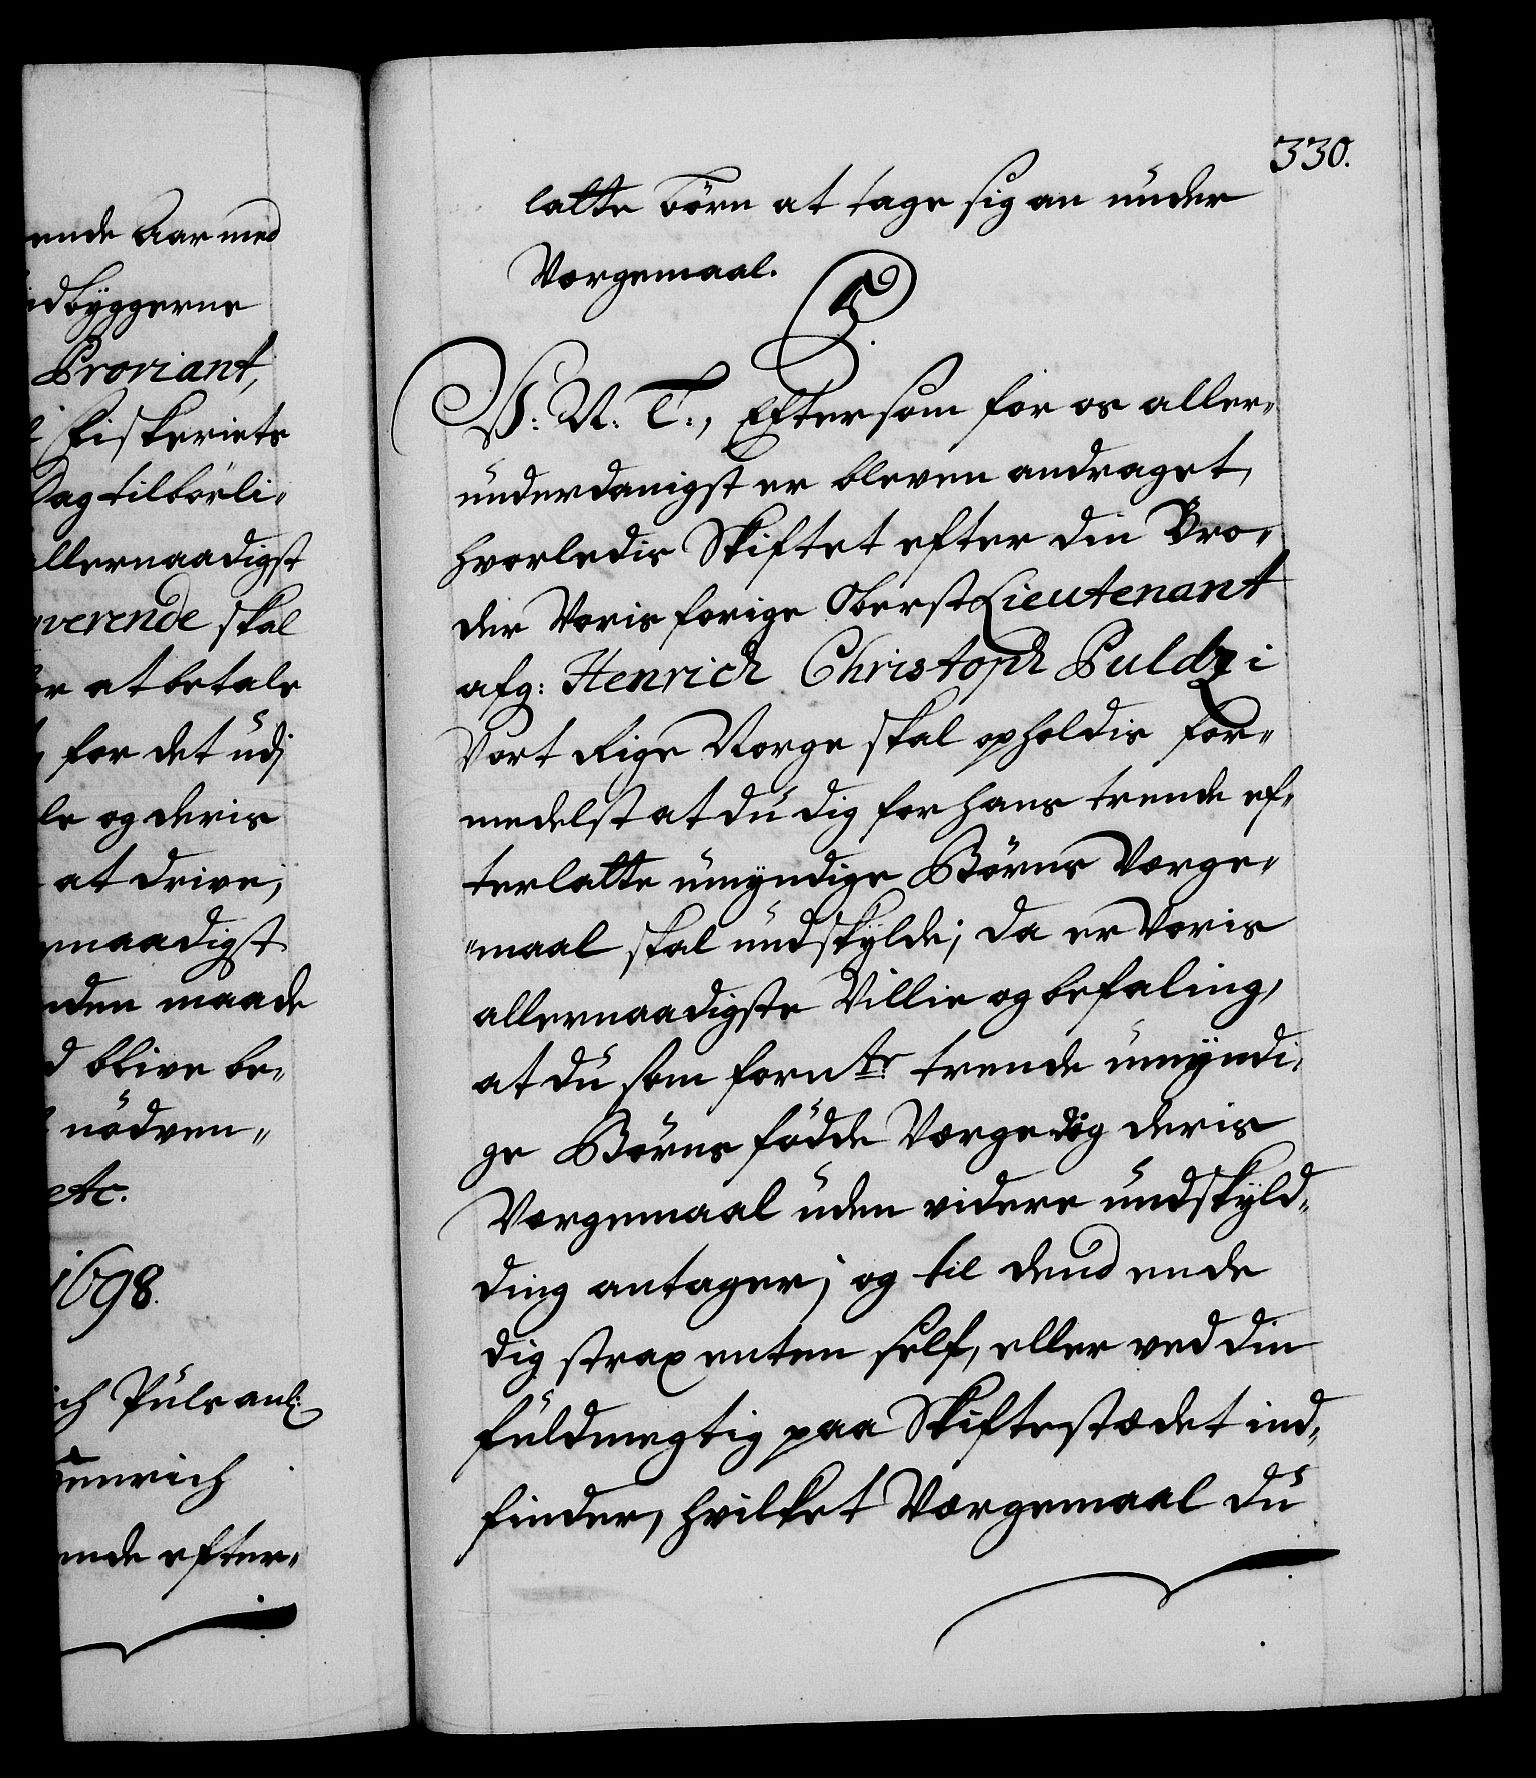 ende Aar med
idbÿggerne
Proviant,
Fiskeriets
Dag tilbörli-
allernaadigst
verende skal
at betale
for det udj
le og deris
at drive,
rnaadigst
den maade
d blive be-
nödven-
etc.
1698.
ich Puls anl:
Henrich
ende efter-
330.
latte börn at tage sig an under
Vorgemaal.
C5.
V. A. T., Eftersom for os aller-
underdanigst er bleven andraget,
hvorledis Skiftet efter din Bro-
der Voris forige Oberst Lieutenant
afg: Henrich Christoph Puldz i
Vort Rige Norge skal opholdis for-
medelst at du dig for hans trende ef-
terlatte umÿndige Börns Vorge-
maal skal undskÿlde; da er Voris
allernaadigste Villie og befaling,
at du som forn.te trende umÿndi-
ge Börns födde Vorge dig deris
Vorgemaal uden videre undskÿld-
ding antager; og til dend ende
dig strax enten self, eller ved din
fuldmegtig paa Skiftestædet ind-
finder, hvilket Vorgemaal du